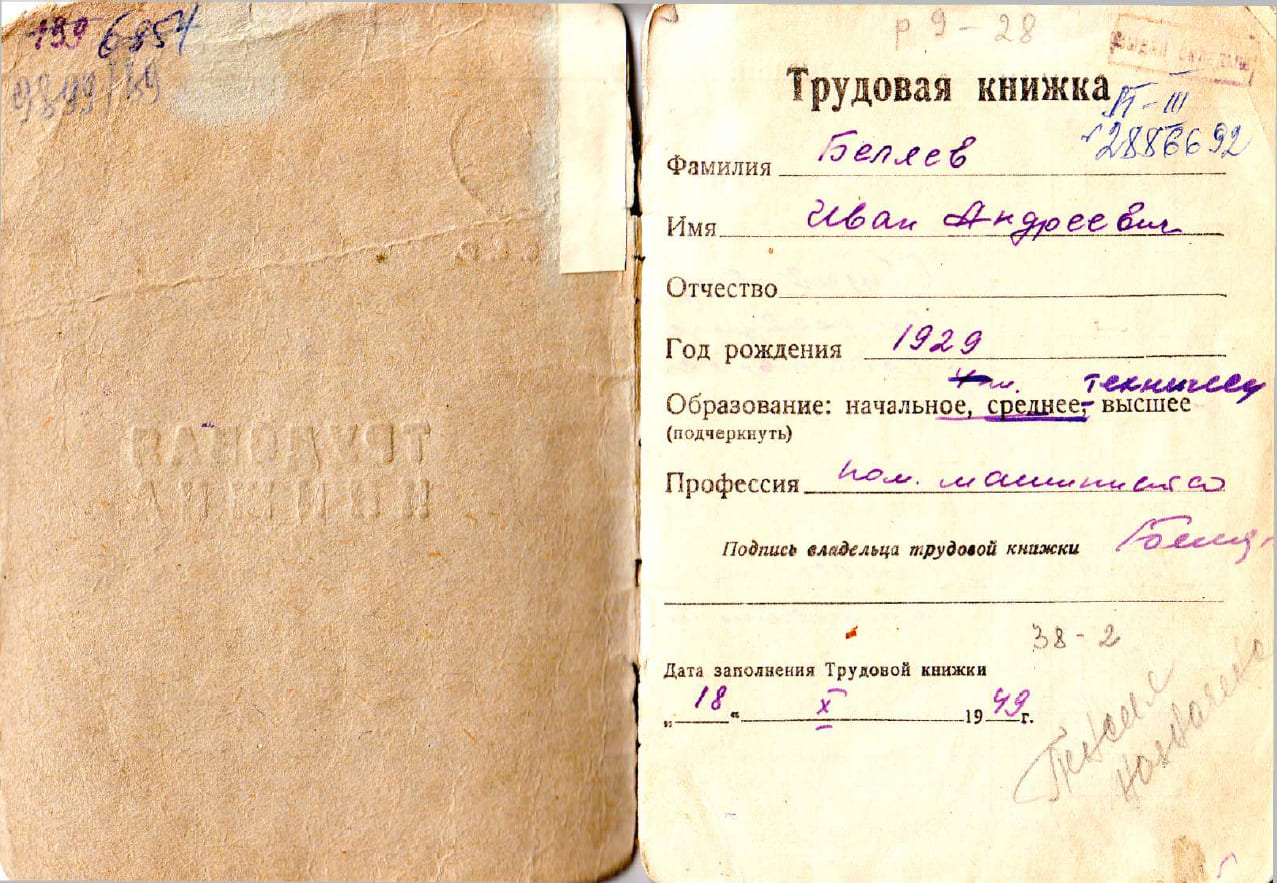 199 6854
9899/49
ТРУДОВАЯ
КНИЖКА
р 9-28
Трудовая книжка
VI-III
2886692
Фамилия Беляев
Имя Иван Андреевич
Отчество
Год рождения 1929
Образование: начальное, среднее, высшее
(подчеркнуть)
Профессия пом. машиниста
Подпись владельца трудовой книжки
38-2
Дата заполнения Трудовой книжки
„18“ X 1949 г.
Пенсия
назначена